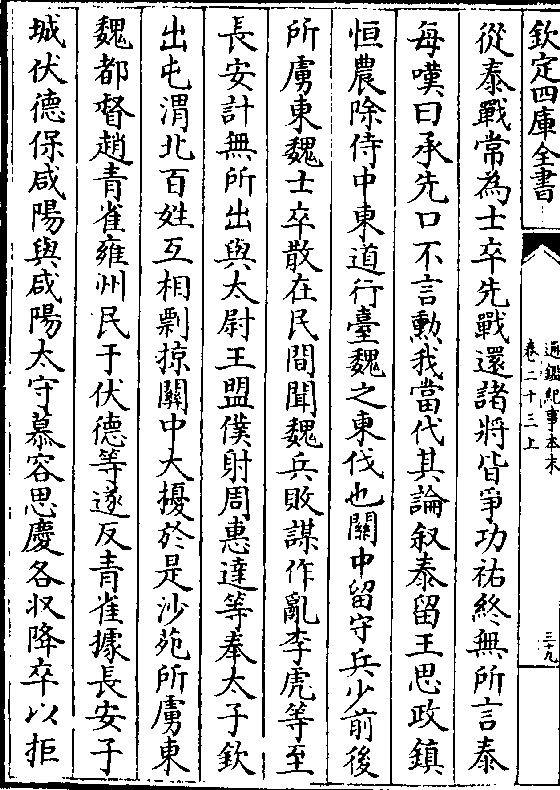 欽定四庫全書
通鑑紀事本末
卷二十三上
三十九
從泰戰常為士卒先戰還諸將皆爭功祐終無所言泰
每嘆曰承先口不言勲我當代其論叙泰留王思政鎮
恒農除侍中東道行臺魏之東伐也關中留守兵少前後
所虜東魏士卒散在民間聞魏兵敗謀作亂李虎等至
長安計無所出與太尉王盟僕射周惠達等奉太子欽
出屯渭北百姓互相剽掠關中大擾於是沙苑所虜東
魏都督趙青雀雍州民于伏德等遂反青雀據長安子
城伏德保咸陽與咸陽太守慕容思慶各收降卒以拒